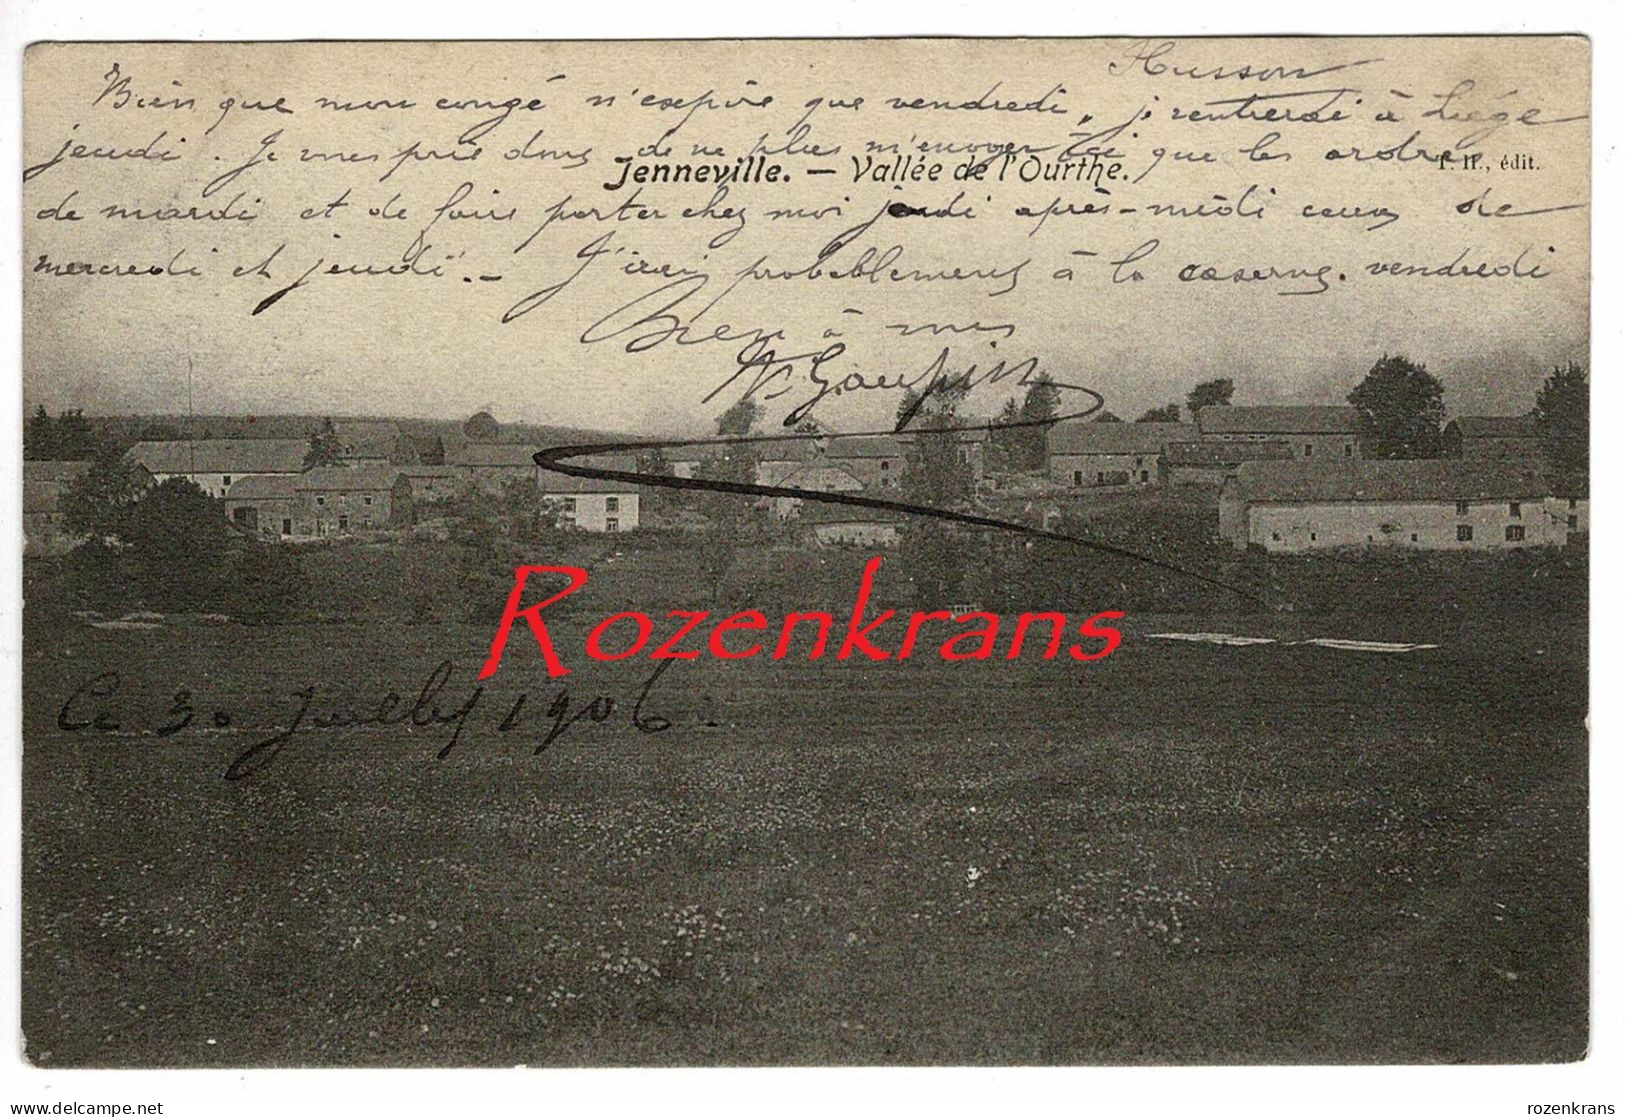 Husson
Bien que mon congé n'expire que vendredi, je rentrerai à Liége
jeudi. Je vous prie donc de ne plus m'envoyer ici que les ordres
Jenneville. — Vallée de l'Ourthe.
T. H., édit.
de mardi et de faire porter chez moi jeudi après-midi ceux de
mercredi et jeudi. - J'irai probablement à la caserne vendredi
Bien à vous
Ce 30 Juillet 1906.
Rozenkrans
delcampe.net
rozenkrans